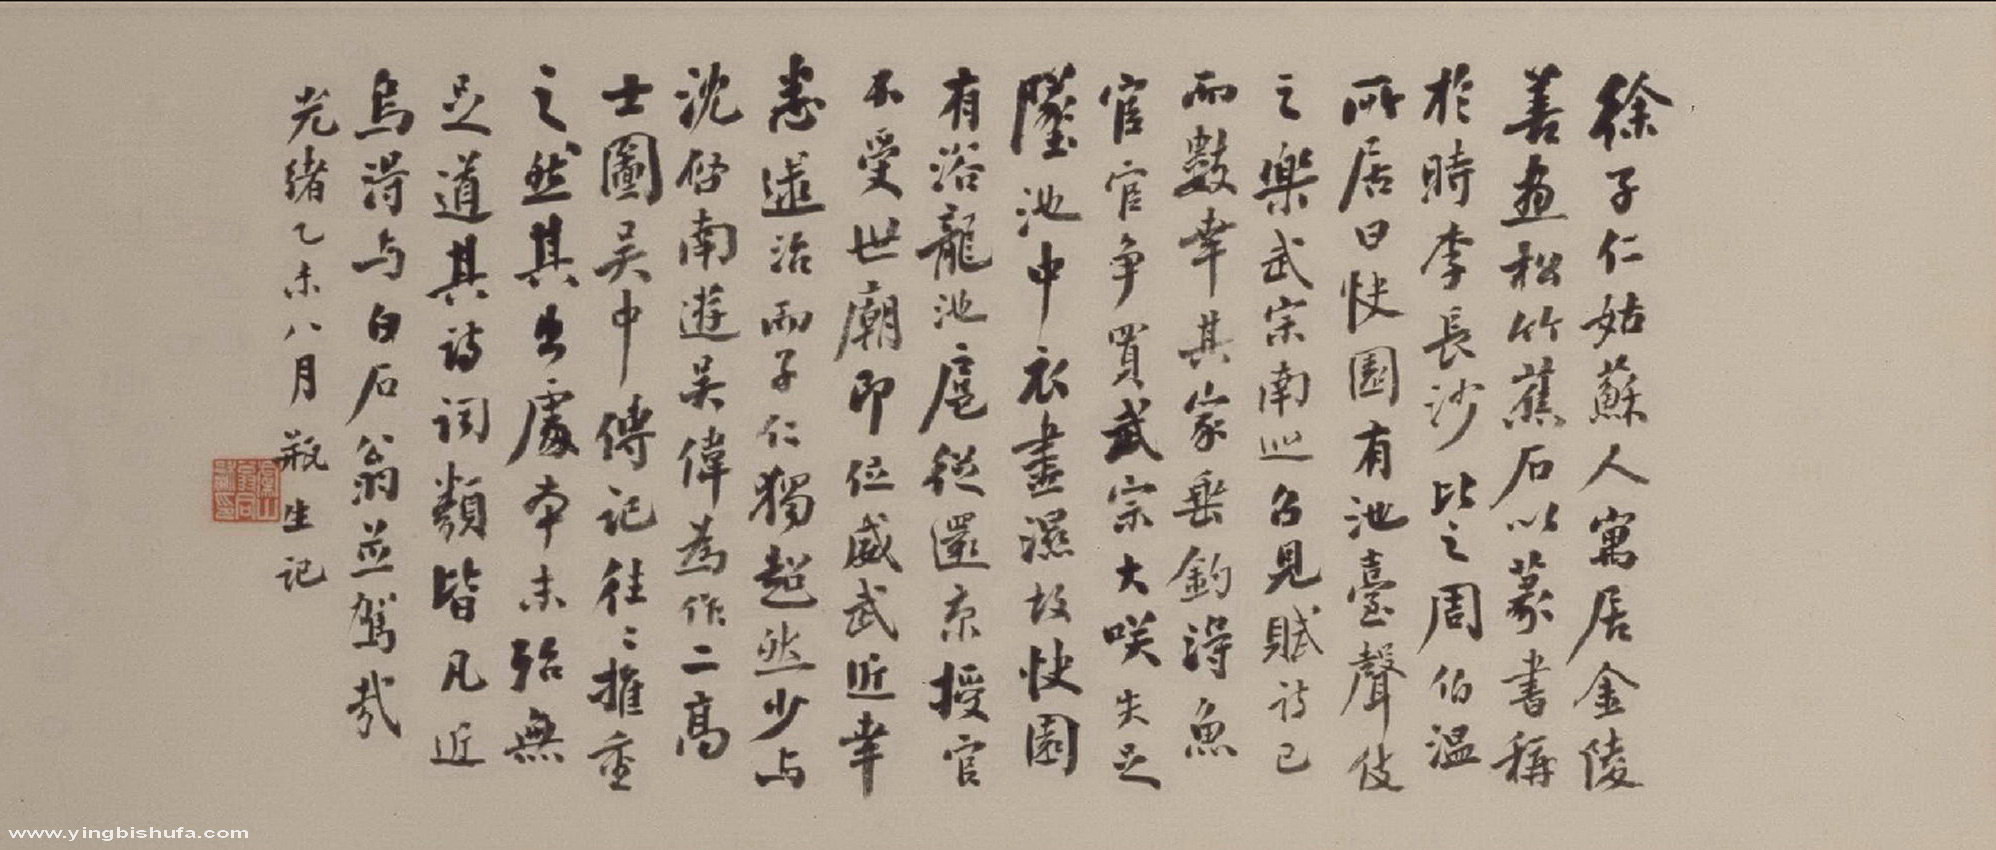 徐子仁姑蘇人寓居金陵
善畫松竹蕉石以篆書稱
於時李長沙比之周伯温
所居曰快園有池臺聲伎
之樂武宗南巡召見賦詩已
而數幸其家垂釣得魚
官官争買武宗大咲失足
墜池中衣盡濕故快園
有浴龍池扈從還京授官
不受世廟即位威武近幸
悉逮治而子仁獨超然少与
沈石南遊吴偉為作二高
士圖吴中傳記往〻推重
之然其出處本末殆無
足道其詩詞類皆凡近
烏得与白石翁並駕哉
光緒乙未八月 瓶生記
www.yingbishufa.com